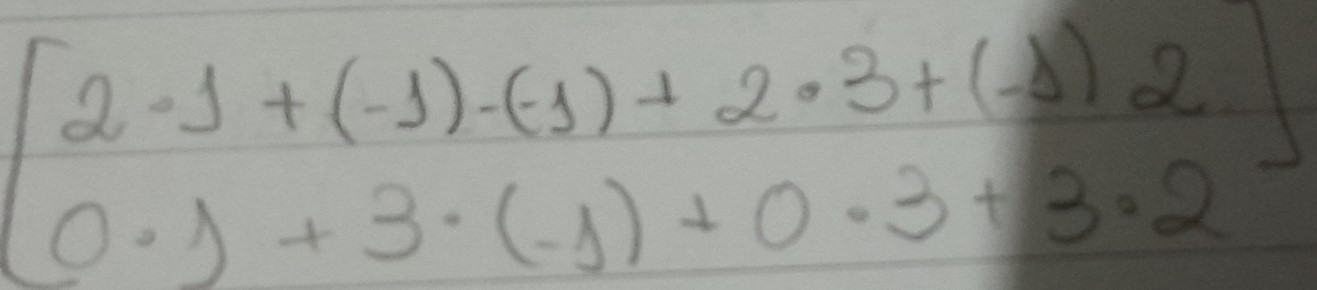 [2·1+(-1)-(-1)+2·3+(-1)2]
0·1+3·(-1)+0·3+3·2